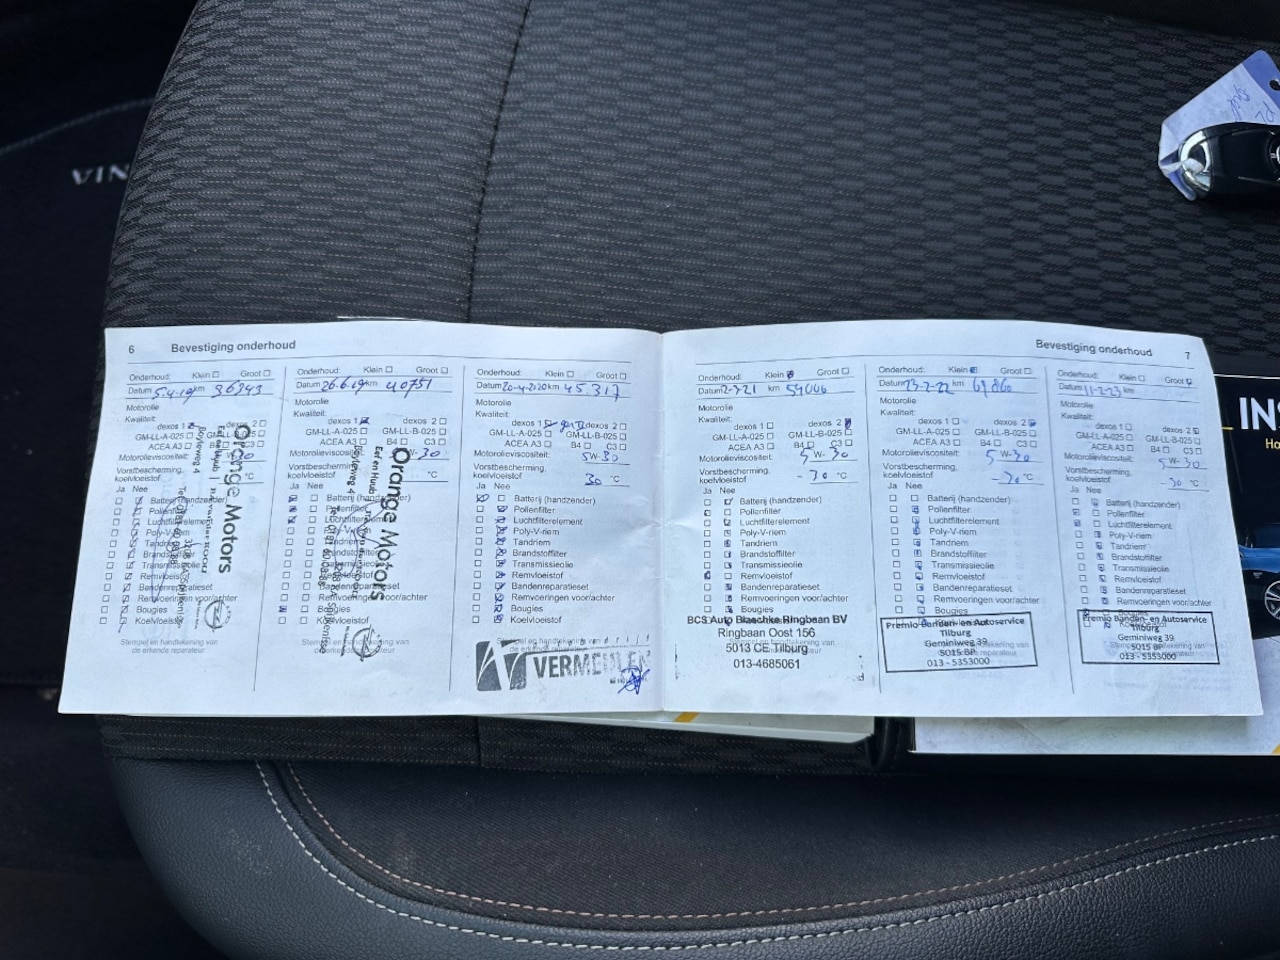 6 Bevestiging onderhoud
Onderhoud: Klein Groot
Datum 5.4.19 km 36343
Motorolie
Kwaliteit:
dexos 1 dexos 2
GM-LL-A-025 GM-LL-B-025
ACEA A3 B4 C3
Motorolieviscositeit: 30
Vorstbescherming,
koelvloeistof °C
Ja Nee
Batterij (handzender)
Pollenfilter
Luchtfilterelement
Poly-V-riem
Tandriem
Brandstoffilter
Transmissieolie
Remvloeistof
Bandenreparatieset
Remvoeringen voor/achter
Bougies
Koelvloeistof
Stempel en handtekening van
de erkende reparateur
Orange Motors
Onderhoud: Klein Groot
Datum 26.6.19 km 40751
Motorolie
Kwaliteit:
dexos 1 dexos 2
GM-LL-A-025 GM-LL-B-025
ACEA A3 B4 C3
Motorolieviscositeit: W-30
Vorstbescherming,
koelvloeistof °C
Ja Nee
Batterij (handzender)
Pollenfilter
Luchtfilterelement
Poly-V-riem
Tandriem
Brandstoffilter
Transmissieolie
Remvloeistof
Bandenreparatieset
Remvoeringen voor/achter
Bougies
Koelvloeistof
Stempel en handtekening van
de erkende reparateur
Orange Motors
Onderhoud: Klein Groot
Datum 20-4-2020 km 45.317
Motorolie
Kwaliteit:
dexos 1 dexos 2
GM-LL-A-025 GM-LL-B-025
ACEA A3 B4 C3
Motorolieviscositeit: 5W-30
Vorstbescherming,
koelvloeistof 30 °C
Ja Nee
Batterij (handzender)
Pollenfilter
Luchtfilterelement
Poly-V-riem
Tandriem
Brandstoffilter
Transmissieolie
Remvloeistof
Bandenreparatieset
Remvoeringen voor/achter
Bougies
Koelvloeistof
VERMEULEN
Bevestiging onderhoud 7
Onderhoud: Klein Groot
Datum 2-7-21 km 54006
Motorolie
Kwaliteit:
dexos 1 dexos 2
GM-LL-A-025 GM-LL-B-025
ACEA A3 B4 C3
Motorolieviscositeit: 5W-30
Vorstbescherming,
koelvloeistof -30 °C
Ja Nee
Batterij (handzender)
Pollenfilter
Luchtfilterelement
Poly-V-riem
Tandriem
Brandstoffilter
Transmissieolie
Remvloeistof
Bandenreparatieset
Remvoeringen voor/achter
Bougies
BCS Auto Blaschke Ringbaan BV
Ringbaan Oost 156
5013 CE Tilburg
013-4685061
Onderhoud: Klein Groot
Datum km
Motorolie
Kwaliteit:
dexos 1 dexos 2
GM-LL-A-025 GM-LL-B-025
ACEA A3 B4 C3
Motorolieviscositeit: 5W-30
Vorstbescherming,
koelvloeistof -30 °C
Ja Nee
Batterij (handzender)
Pollenfilter
Luchtfilterelement
Poly-V-riem
Tandriem
Brandstoffilter
Transmissieolie
Remvloeistof
Bandenreparatieset
Remvoeringen voor/achter
Bougies
Premio Banden- en Autoservice
Tilburg
Geminiweg 39
5015 BP
013 - 5353000
Onderhoud: Klein Groot
Datum 11-2-23 km
Motorolie
Kwaliteit:
dexos 1 dexos 2
GM-LL-A-025 GM-LL-B-025
ACEA A3 B4 C3
Motorolieviscositeit: 5W-30
Vorstbescherming,
koelvloeistof -30 °C
Ja Nee
Batterij (handzender)
Pollenfilter
Luchtfilterelement
Poly-V-riem
Tandriem
Brandstoffilter
Transmissieolie
Remvloeistof
Bandenreparatieset
Remvoeringen voor/achter
Premio Banden- en Autoservice
Tilburg
Geminiweg 39
5015 BP
013 - 5353000